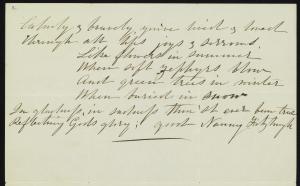 Calmly & bravely you've lived & loved
through all life's joys & sorrows.
Like flowers in summer
When soft zephyrs blow
And green trees in winter
When buried in snow
In gladness, in sadness thou'st ever been true
Reflecting God's glory; good Nanny Fitzhugh